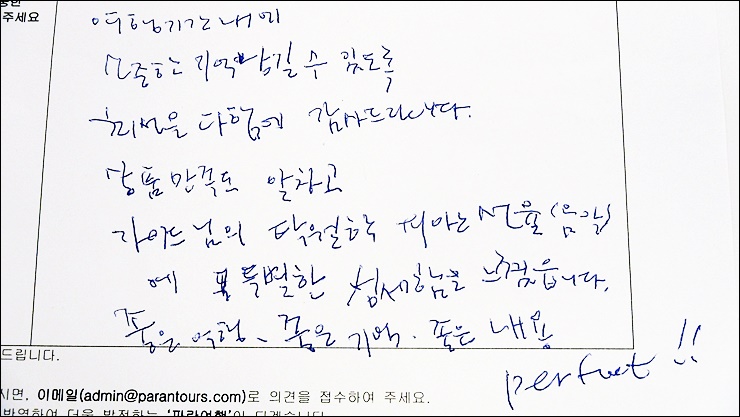 주세요
여행기간 내에
소중한 기억 남길 수 있도록
최선을 다함에 감사드립니다.
상품만족도 알차고
가이드님의 탁월한 선물(음악)
에 특별한 섬세함을 느꼈읍니다.
좋은 여행, 좋은 기억, 좋은 내용
perfect !!
드립니다.
시면, 이메일(admin@parantours.com)로 의견을 접수하여 주세요.
반영하여 더욱 발전하는 '파란여행'이 되겠습니다.